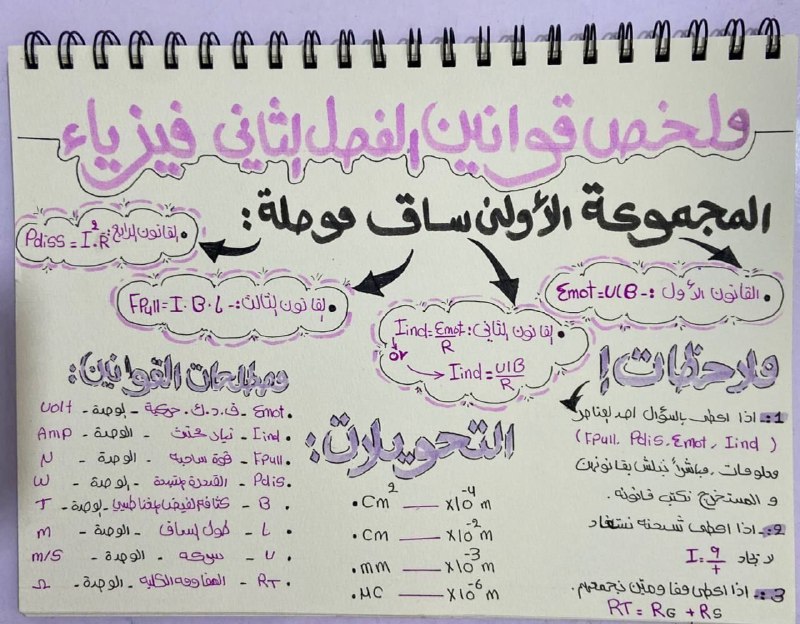 ملخص قوانين الفصل الثاني فيزياء
المجموعة الأولى ساق موصلة:
• القانون الأول :- Emot=UlB
• القانون الثاني: Iind = Emot/R
or
Iind = UlB/R
• القانون الثالث:- FPull=I.B.L
• القانون الرابع: Pdiss = I².R
ملاحظات !
1: اذا اعطى بالسؤال احد العناصر
(FPull, Pdis, Emot, Iind)
معلومات، مباشرأ نبلش بقانونهن
و المستخرج نكتب قانونه.
2:- اذا اعطى شحنه نستفاد
لايجاد I = q/t
3: اذا اعطى مقاومتين نجمعهم.
RT = RG + RS
التحويلات:
• Cm² —— x10⁻⁴ m
• Cm —— x10⁻² m
• mm —— x10⁻³ m
• MC —— x10⁻⁶ m
مصطلحات القوانين:
• Emot - ق.د.ك. حركية - الوحدة - Volt
• Iind - تيار محتث - الوحدة - Amp
• FPull - قوة ساحبه - الوحدة - N
• Pdis - القدرة المتبددة - الوحدة - W
• B - كثافة الفيض المغناطيسي - الوحدة - T
• L - طول الساق - الوحدة - m
• U - سرعه - الوحدة - m/s
• RT - المقاومة الكليه - الوحدة - Ω